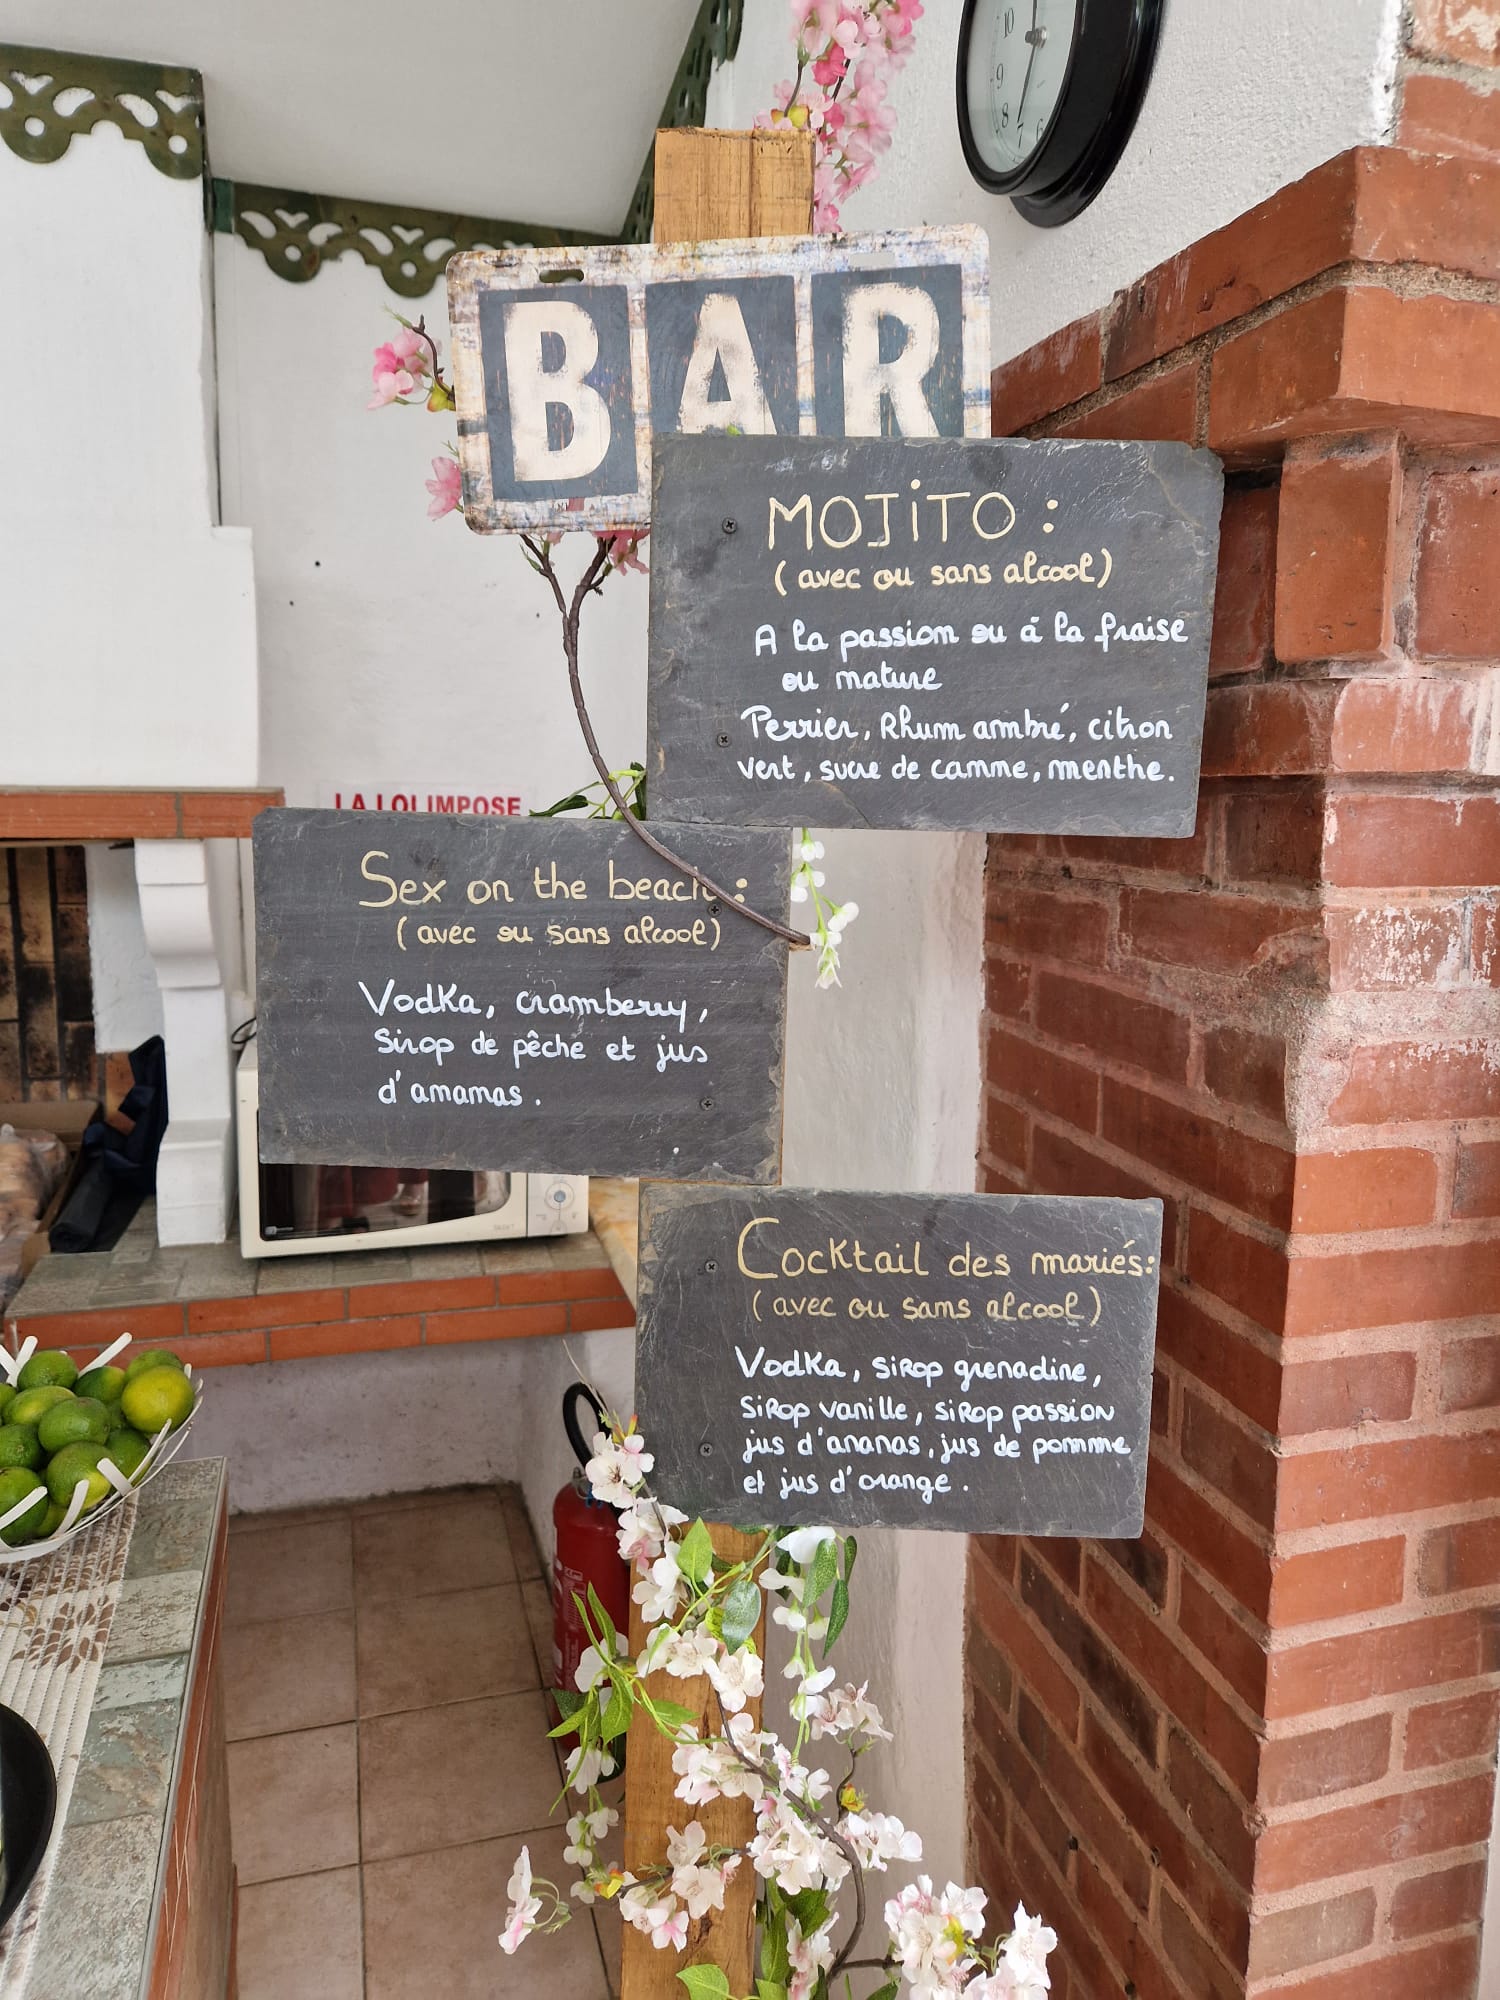 BAR
MOJiTO :
( avec ou sans alcool)
A la passion ou á la fraise
ou mature
Perrier, Rhum ambré, citron
vert, sucre de camme, menthe.
LA LOI IMPOSE
Sex on the beach :
( avec ou sans alcool)
Vodka, cramberry,
Sirop de pêche et jus
d'amamas.
Cocktail des mariés:
(avec ou sams alcool)
Vodka, sirop grenadine,
sirop vanille, sirop passion
jus d'ananas, jus de pomme
et jus d'orange.
10
9
8
7
6